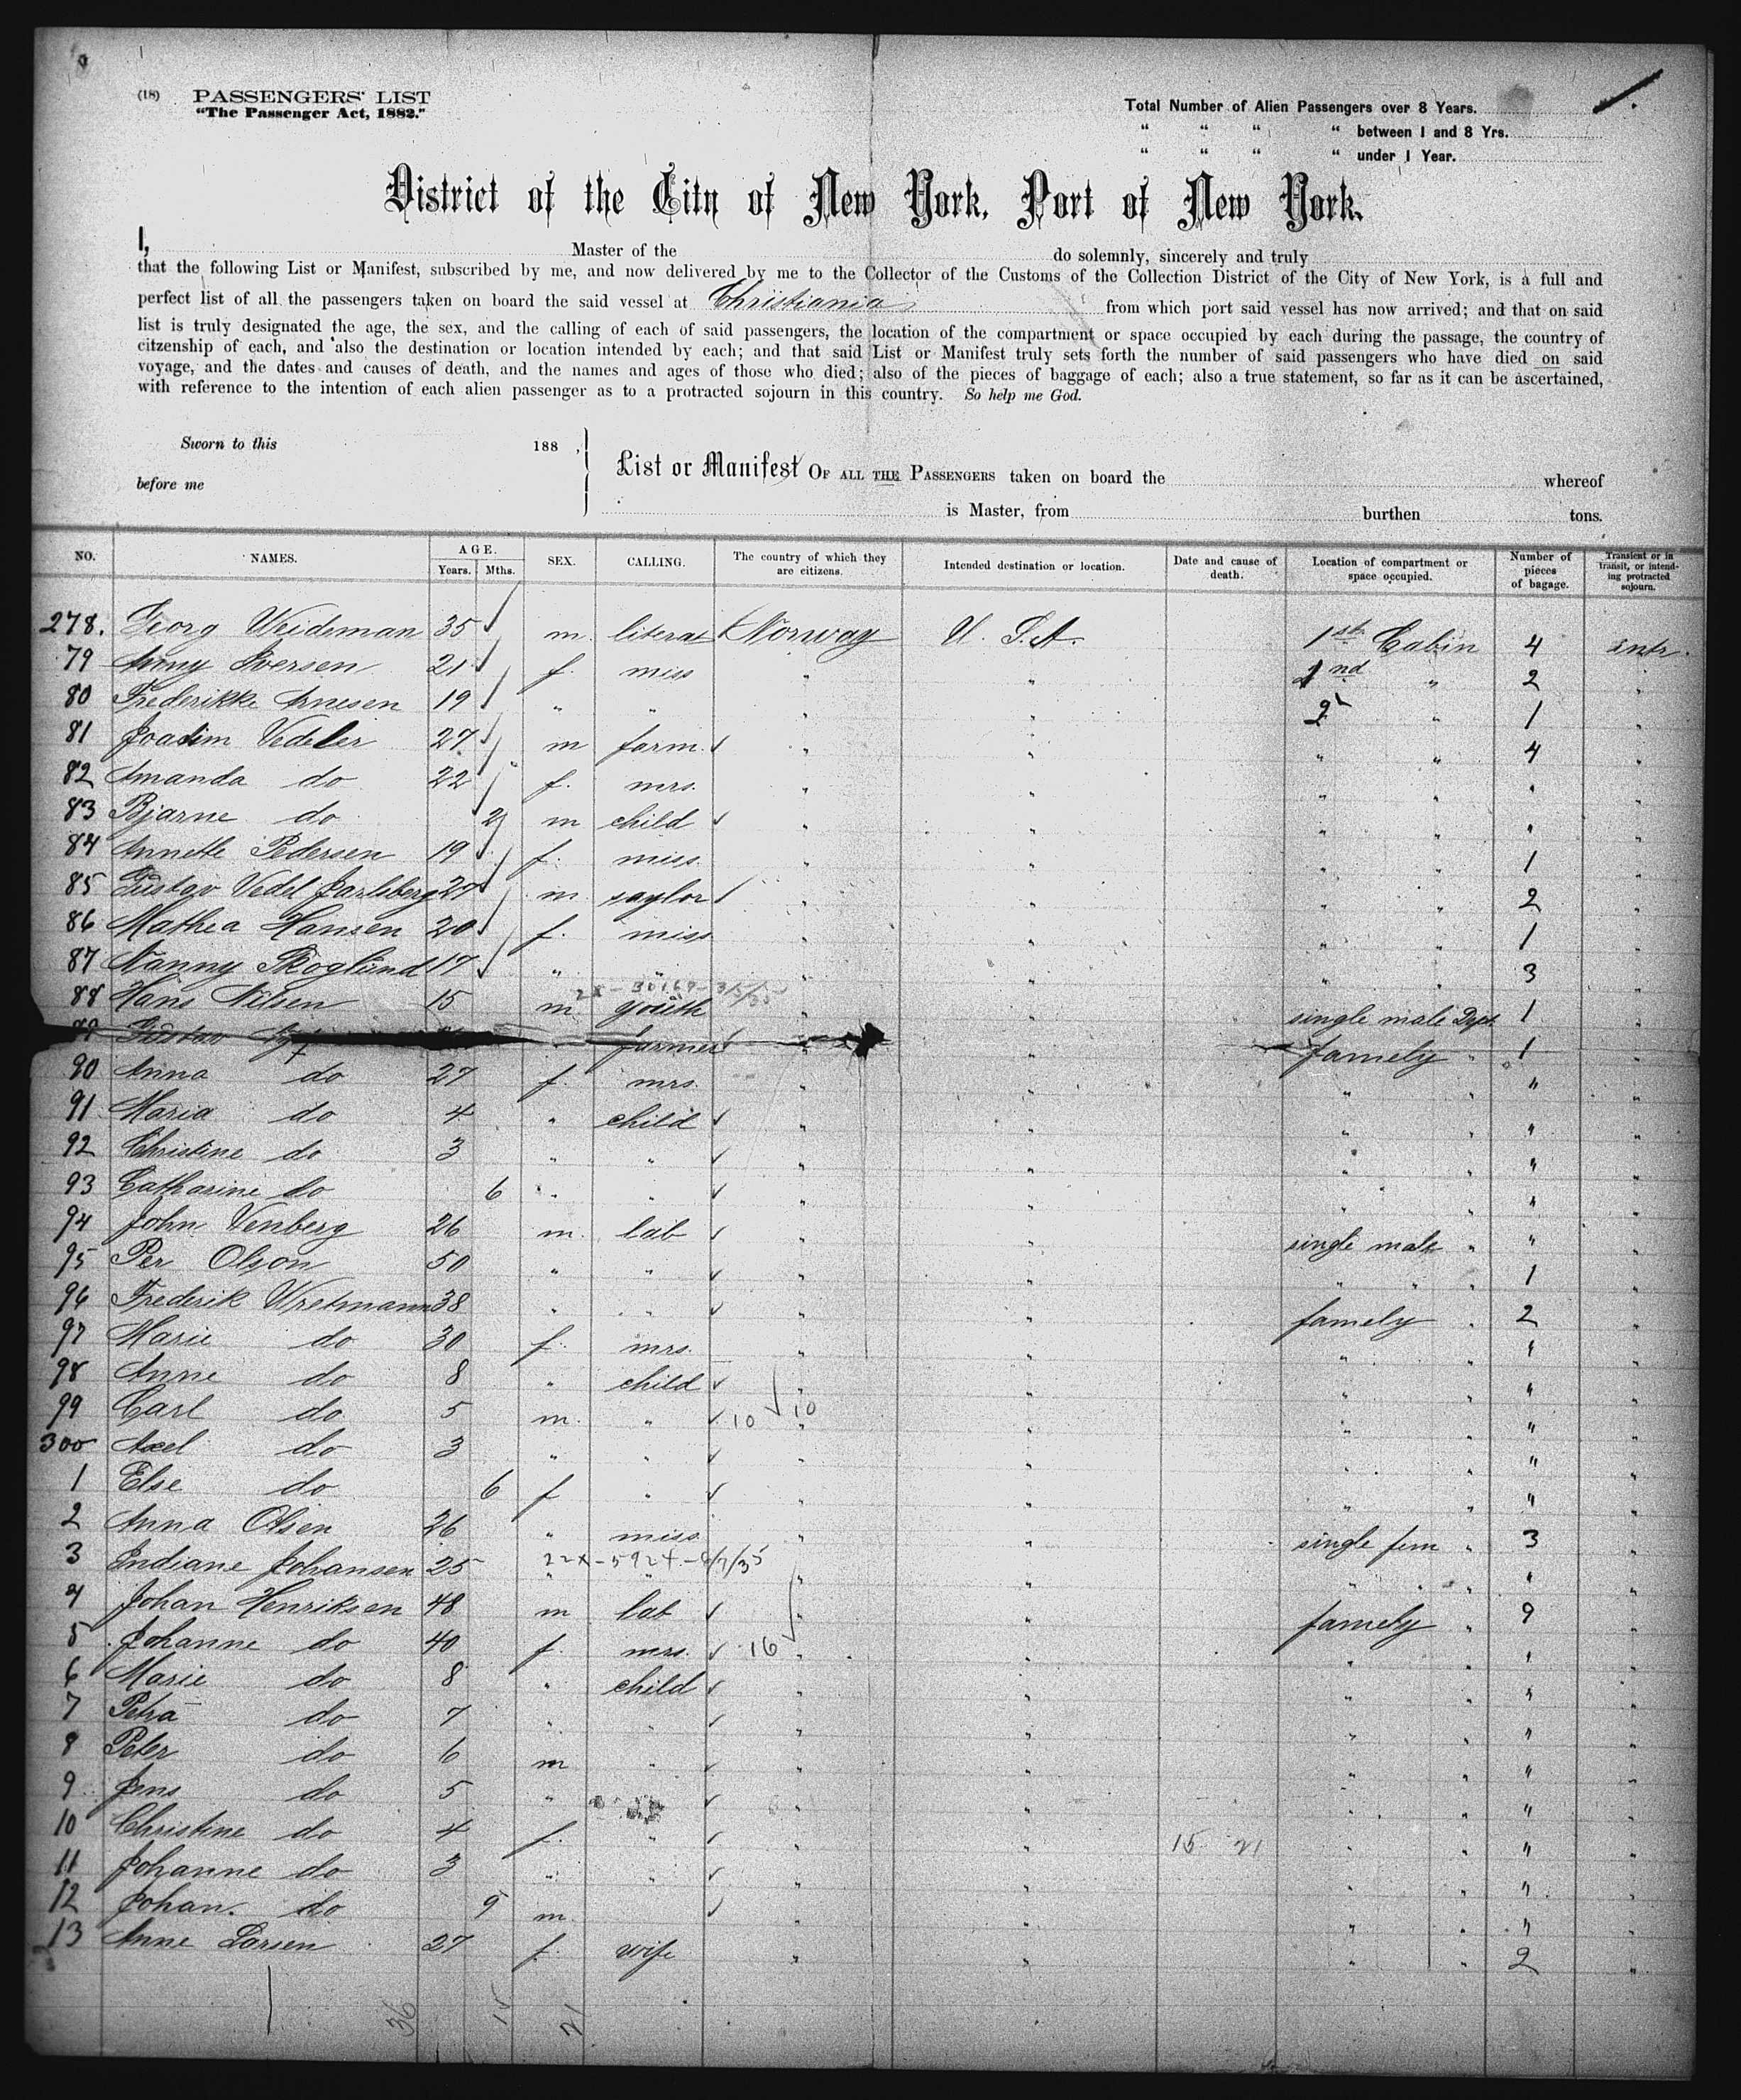 (18) PASSENGERS' LIST
"The Passenger Act, 1882."
Total Number of Alien Passengers over 8 Years.
" " " " between 1 and 8 Yrs.
" " " " under 1 Year.
District of the City of New York, Port of New York.
I, Master of the do solemnly, sincerely and truly
that the following List or Manifest, subscribed by me, and now delivered by me to the Collector of the Customs of the Collection District of the City of New York, is a full and
perfect list of all the passengers taken on board the said vessel at Christiania from which port said vessel has now arrived; and that on said
list is truly designated the age, the sex, and the calling of each of said passengers, the location of the compartment or space occupied by each during the passage, the country of
citzenship of each, and also the destination or location intended by each; and that said List or Manifest truly sets forth the number of said passengers who have died on said
voyage, and the dates and causes of death, and the names and ages of those who died; also of the pieces of baggage of each; also a true statement, so far as it can be ascertained,
with reference to the intention of each alien passenger as to a protracted sojourn in this country. So help me God.
Sworn to this 188 ,
before me
List or Manifest OF ALL THE PASSENGERS taken on board the whereof
is Master, from burthen tons.
NO. NAMES. AGE. Years. Mths. SEX. CALLING. The country of which they are citizens. Intended destination or location. Date and cause of death. Location of compartment or space occupied. Number of pieces of bagage. Transient or in transit, or intending protracted sojourn.
278. Georg Weideman 35 m. literat Norway U. S. A. 1st Cabin 4 intr.
79 Anny Iversen 21 f. miss " " 2nd " 2 "
80 Frederikke Arnesen 19 " " " " 2 " 1 "
81 Joachim Vedeler 27 m farm. " " " " 4 "
82 Amanda do 22 f. mrs. " " " " " "
83 Bjarne do 2 m child " " " " " "
84 Annette Pedersen 19 f. miss " " " " 1 "
85 Gustav Vedel Jarlsberg 27 m. saylor " " " " 2 "
86 Mathea Hansen 20 f. miss " " " " 1 "
87 Nanny Skoglund 17 " " " " " " 3 "
88 Hans Nilsen 15 m. youth " " single male Dept. 1 "
89 Gustav farmer " famely " 1 "
90 Anna do 27 f. mrs. " " " " " "
91 Maria do 4 " child " " " " " "
92 Christine do 3 " " " " " " " "
93 Catharine do 6 " " " " " " " "
94 John Venberg 26 m. lab " " single male " " "
95 Per Olson 50 " " " " " " " 1 "
96 Frederik Wretmann 38 " " " " famely " 2 "
97 Marie do 30 f. mrs. " " " " " "
98 Anne do 8 " child " " " " " "
99 Carl do 5 m. " 10 10 " " " " " "
300 Axel do 3 " " " " " " " "
1 Else do 6 f " " " " " " "
2 Anna Olsen 26 " miss " " single fem " 3 "
3 Indiane Johansen 25 " " " " " " " " "
4 Johan Henriksen 48 m lab " " famely " 9 "
5 Johanne do 40 f. mrs. 16 " " " " " "
6 Marie do 8 " child " " " " " "
7 Petra do 7 " " " " " " " "
8 Peter do 6 m " " " " " " "
9 Jens do 5 " " " " " " "
10 Christine do 4 f. " " " 15 21 " " " "
11 Johanne do 3 " " " " " " " "
12 Johan. do 9 m. " " " " " "
13 Anne Larsen 27 f. wife " " " " 2 "
36 15 21